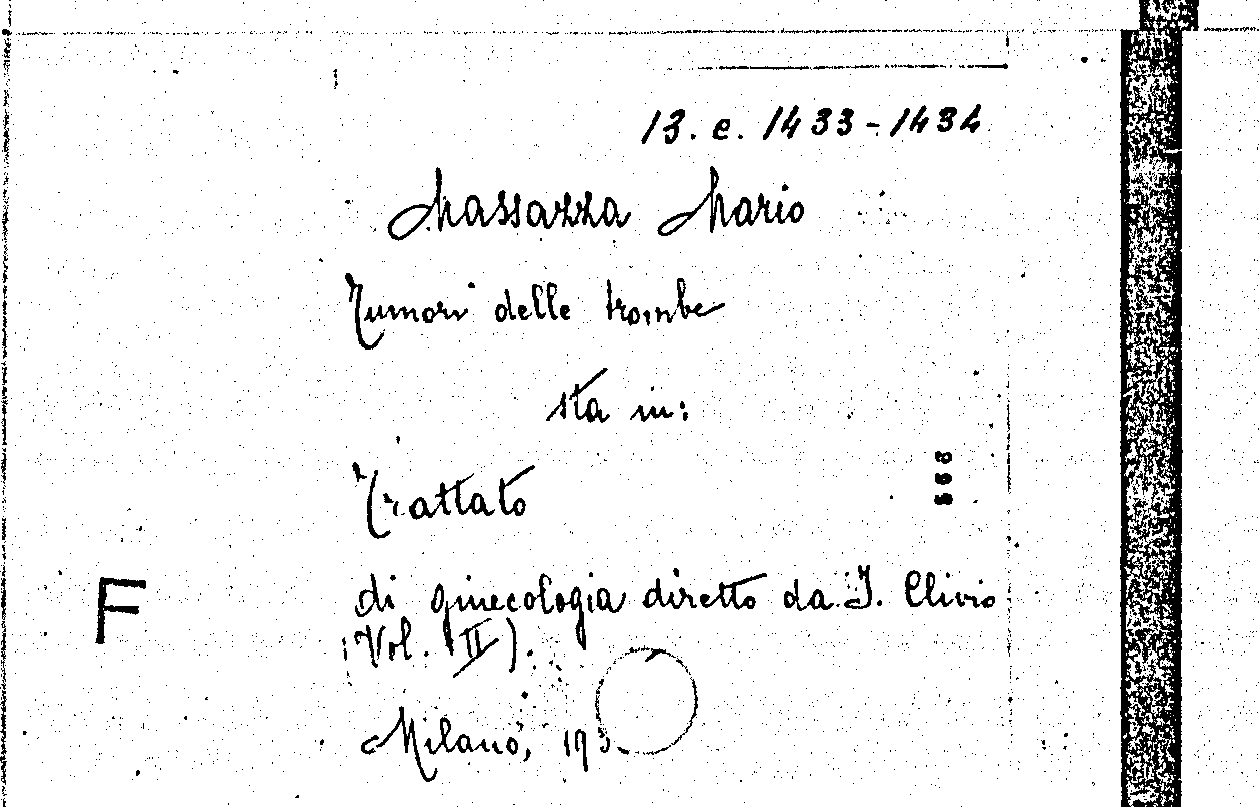 13. e. 1433-1434
Massazza Mario
Tumori delle trombe
sta in:
Trattato
di ginecologia diretto da I. Clivio
(Vol. II).
Milano, 193
F